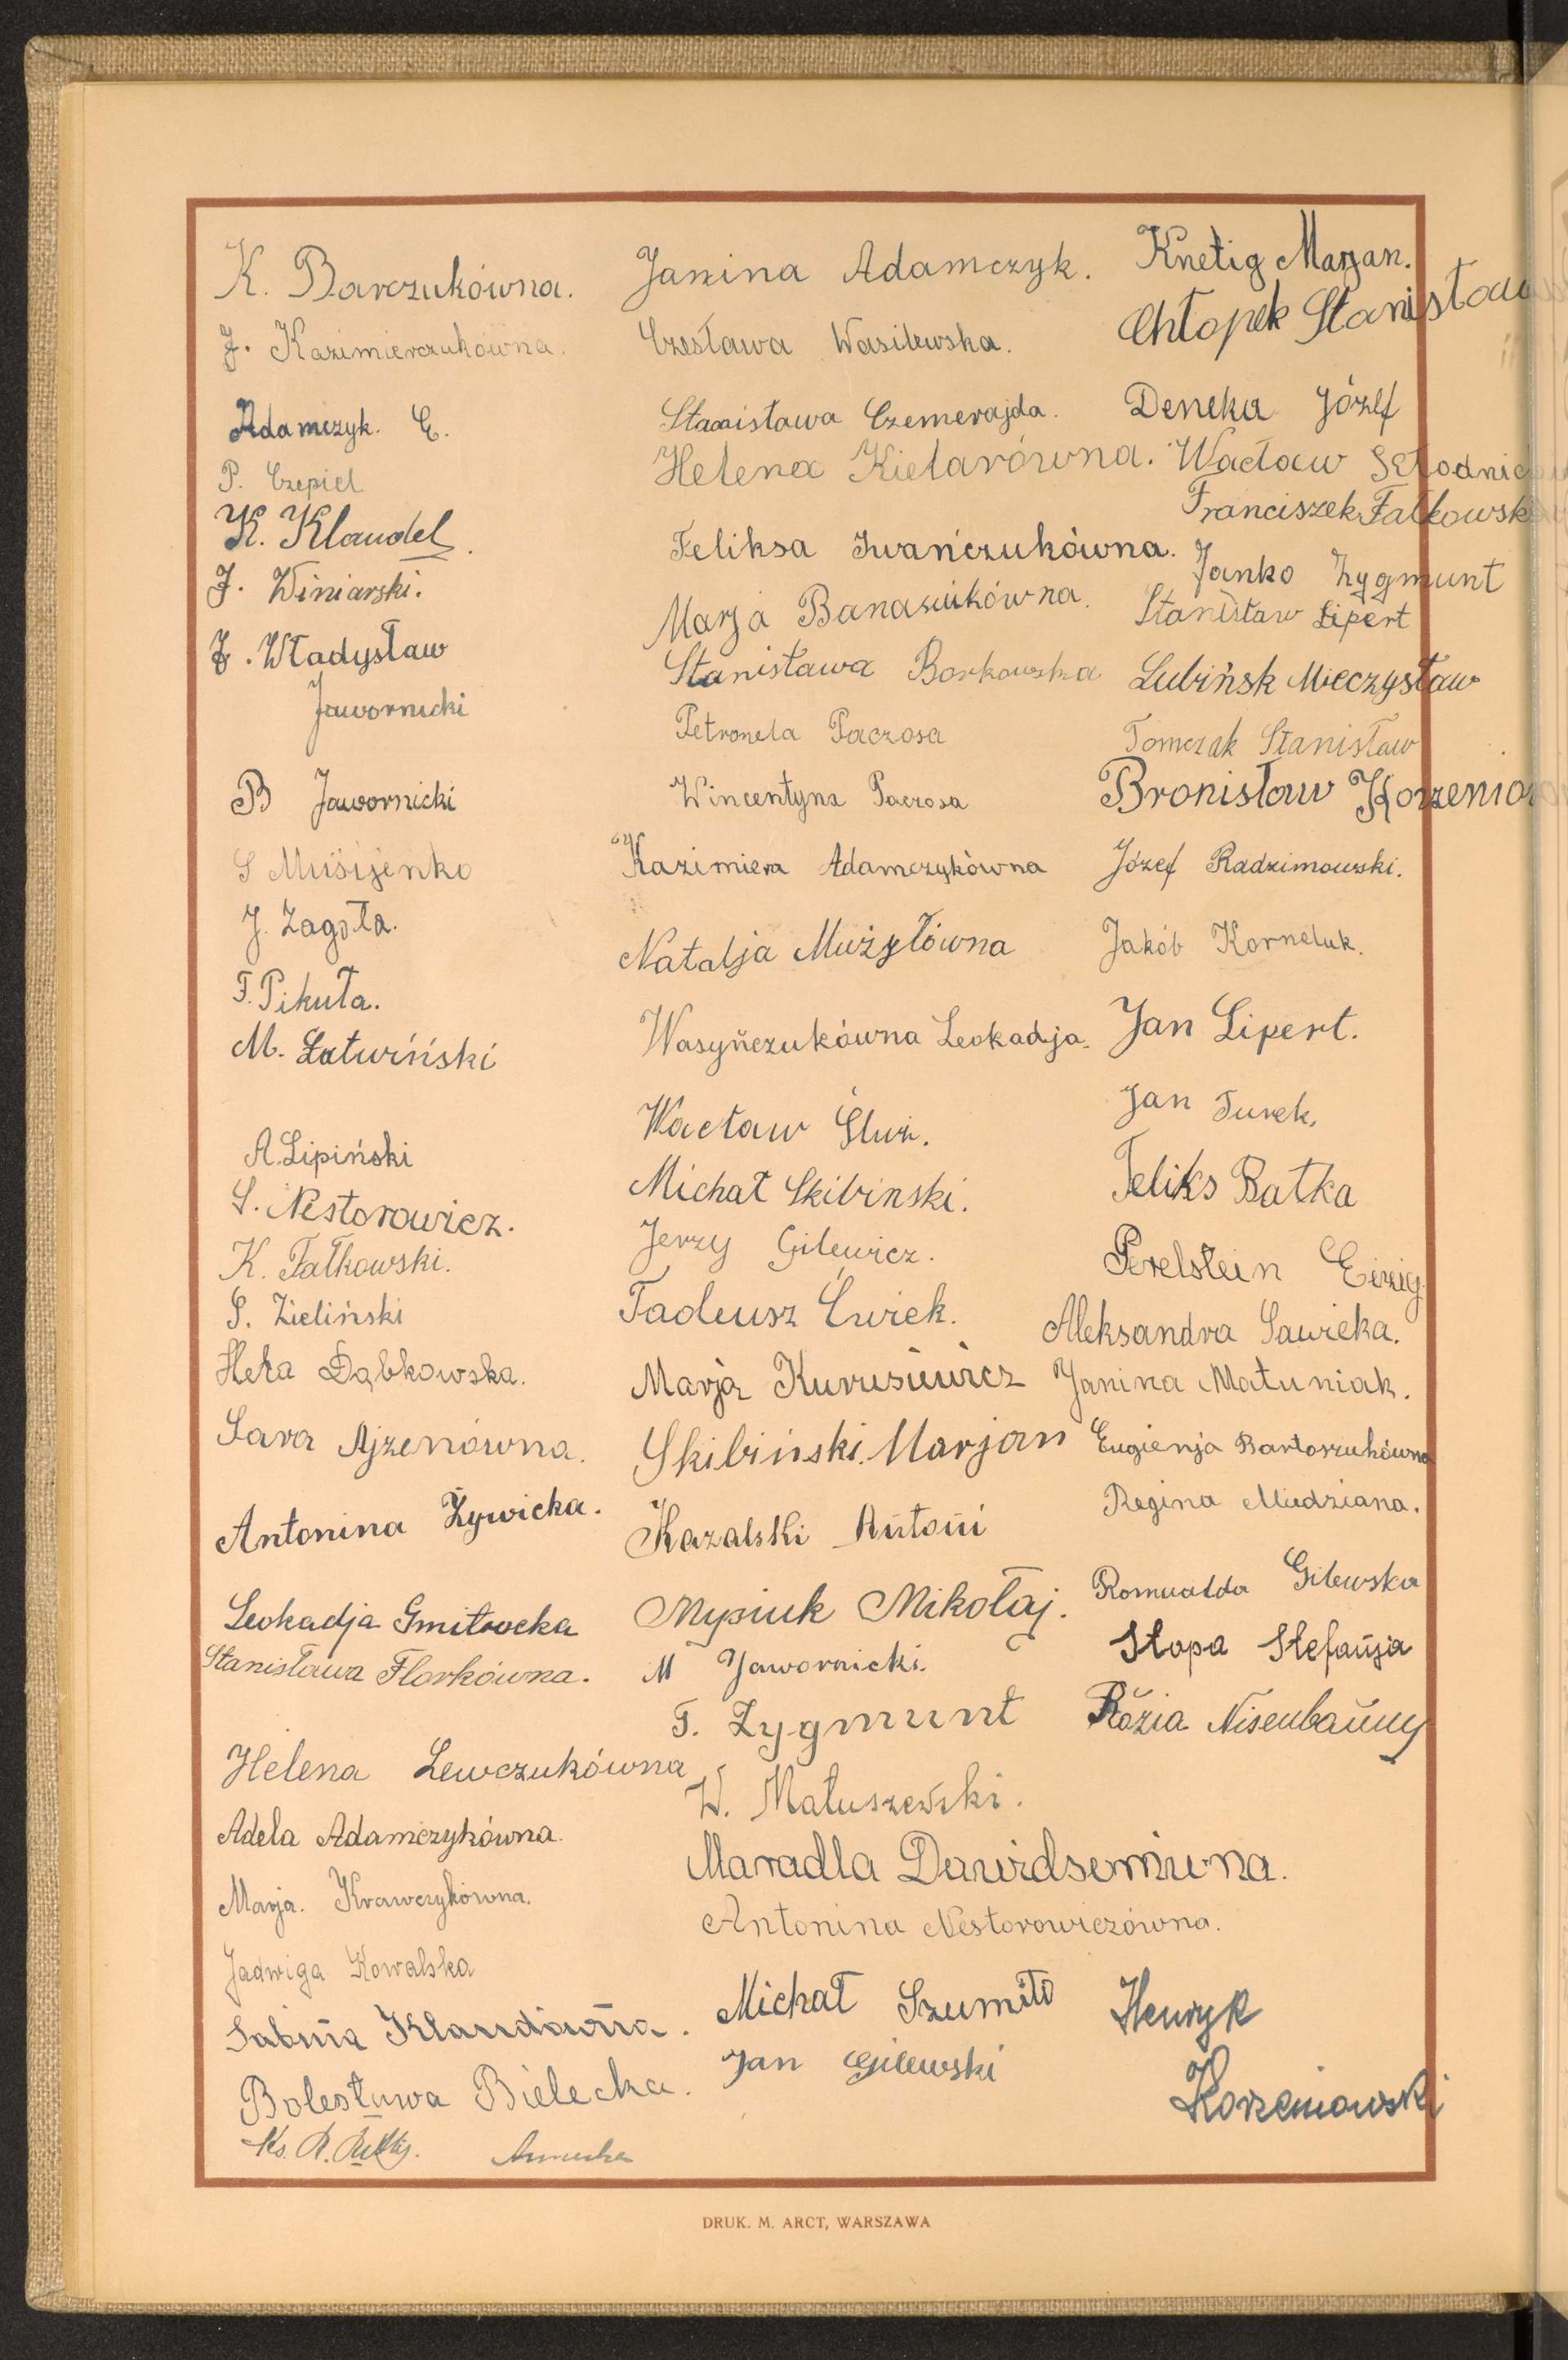 K. Barczukówna.
J. Kazimierczukówna.
Adamczyk. E.
P. Czepiel
K. Klaudel.
J. Winiarski.
J. Władysław
Jawornicki
B Jawornicki
S Musijenko
J. Zagoła.
F. Pikuła.
M. Łatwiński
A. Lipiński
S. Nestorowicz.
K. Fałkowski.
S. Zieliński
Hela Dąbkowska.
Sara Ajzenówna.
Antonina Żywicka.
Leokadja Gmitrocka
Stanisława Florkówna.
Helena Lewczukówna
Adela Adamczykówna.
Marja. Krawczykówna.
Jadwiga Kowalska
Sabina Klaudówna.
Bolesława Bielecka.
Ks. R.
Janina Adamczyk.
Czesława Wasilewska.
Stanisława Czemerajda.
Helena Kielarówna.
Feliksa Iwańczukówna.
Marja Banasiukówna.
Stanisława Borkowska
Petronela Paczosa
Wincentyna Paczosa
Kazimiera Adamczykówna
Natalja Mużyłówna
Wasyńczukówna Leokadja.
Wacław Śliwa.
Michał Skibinski.
Jerzy Gilewicz.
Tadeusz Ćwiek.
Marja Kurusiewicz
Skibiński. Marjan
Kazalski Antoni
Mysiuk Mikołaj.
M Jawornicki.
T. Zygmunt
W. Matuszewski.
Maradla
Antonina Nestorowiczówna.
Michał Szumiło
Jan Gilewski
Knetig Marjan.
Chłopek Stanisław
Deneka Józef
Wacław
Franciszek Fałkowski
Janko Zygmunt
Stanisław Lipert
Lubińsk Mieczysław
Tomczak Stanisław
Bronisław Korzeniow
Józef Radzimowski.
Jakób Korneluk.
Jan Lipert.
Jan Turek.
Feliks Batka
Perelstein Eizig
Aleksandra Sawicka.
Janina Matuniak.
Eugienja Bartoszukówna
Regina Mudziana.
Romualda Gilewska
Stopa Stefanja
Rózia Nisenbaumy
Henryk
Korzeniowski
DRUK. M. ARCT, WARSZAWA